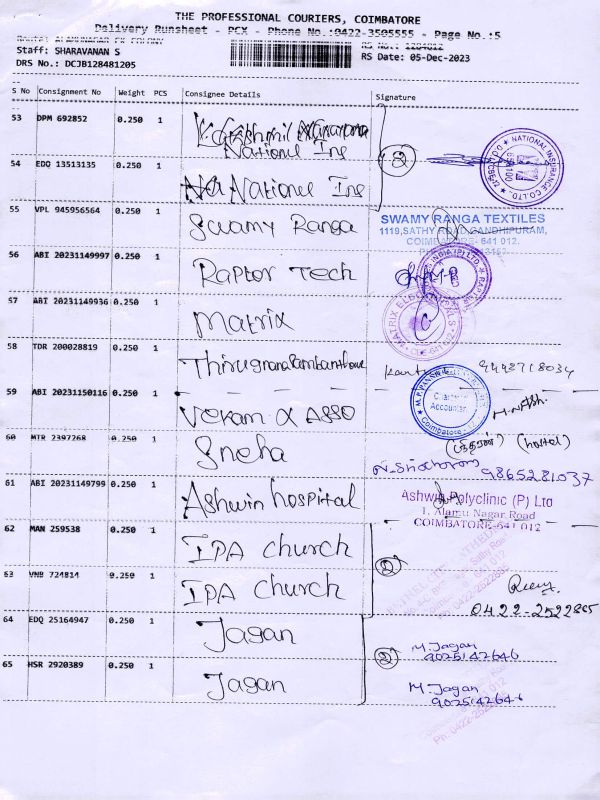 THE PROFESSIONAL COURIERS, COIMBATORE
Delivery Runsheet - PCX - Phone No.:0422-3505555 - Page No.:5
Staff: SHARAVANAN S
RS Date: 05-Dec-2023
DRS No.: DCJB128481205
S No Consignment No Weight PCS Consignee Details Signature
53 DPM 692852 0.250 1
National Ins
54 EDQ 13513135 0.250 1 National Ins
NATIONAL INSURANCE CO.LTD.
55 VPL 945956564 0.250 1 Swamy Ranga
SWAMY RANGA TEXTILES
1119, SATHY ROAD, GANDHIPURAM,
COIMBATORE- 641 012.
56 ABI 20231149997 0.250 1 Raptor Tech
57 ABI 20231149936 0.250 1 Matrix
58 TDR 200028819 0.250 1 9442718034
59 ABI 20231150116 0.250 1 ASSO
Chartered
Accountant
Coimbatore
60 MTR 2397268 0.250 1 Sneha
(hotel)
9865281037
61 ABI 20231149799 0.250 1 Ashwin hospital
Ashwin Polyclinic (P) Ltd
1. Alamu Nagar Road
COIMBATORE-641 012
62 MAN 259538 0.250 1 IPA church
63 VNB 724814 0.250 1 IPA church
0422-2522865
64 EDQ 25164947 0.250 1 Jagan
M. Jagan
9025142646
65 HSR 2920389 0.250 1 Jagan
M. Jagan
9025142646